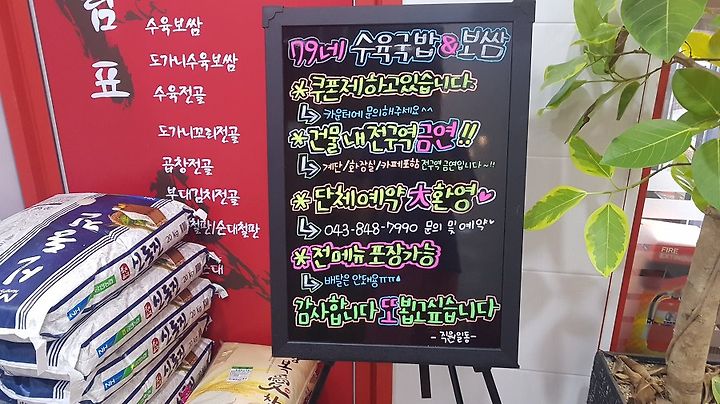 79네 수육국밥&보쌈
*쿠폰제 하고있습니다
↳ 카운터에 문의해주세요^^
*건물 내 전구역 금연!!
↳ 계단/화장실/카페포함 전구역 금연입니다~!!
*단체예약 大환영♥
↳ 043-848-7990 문의 및 예약♥
*전메뉴 포장가능
↳ 배달은 안돼용ㅠㅠ
감사합니다 또 봅고싶습니다
-직원일동-
표
수육보쌈
도가니수육보쌈
수육전골
도가니꼬리전골
곱창전골
부대김치전골
철판/순대철판
순대
20kg
NH
FIRE